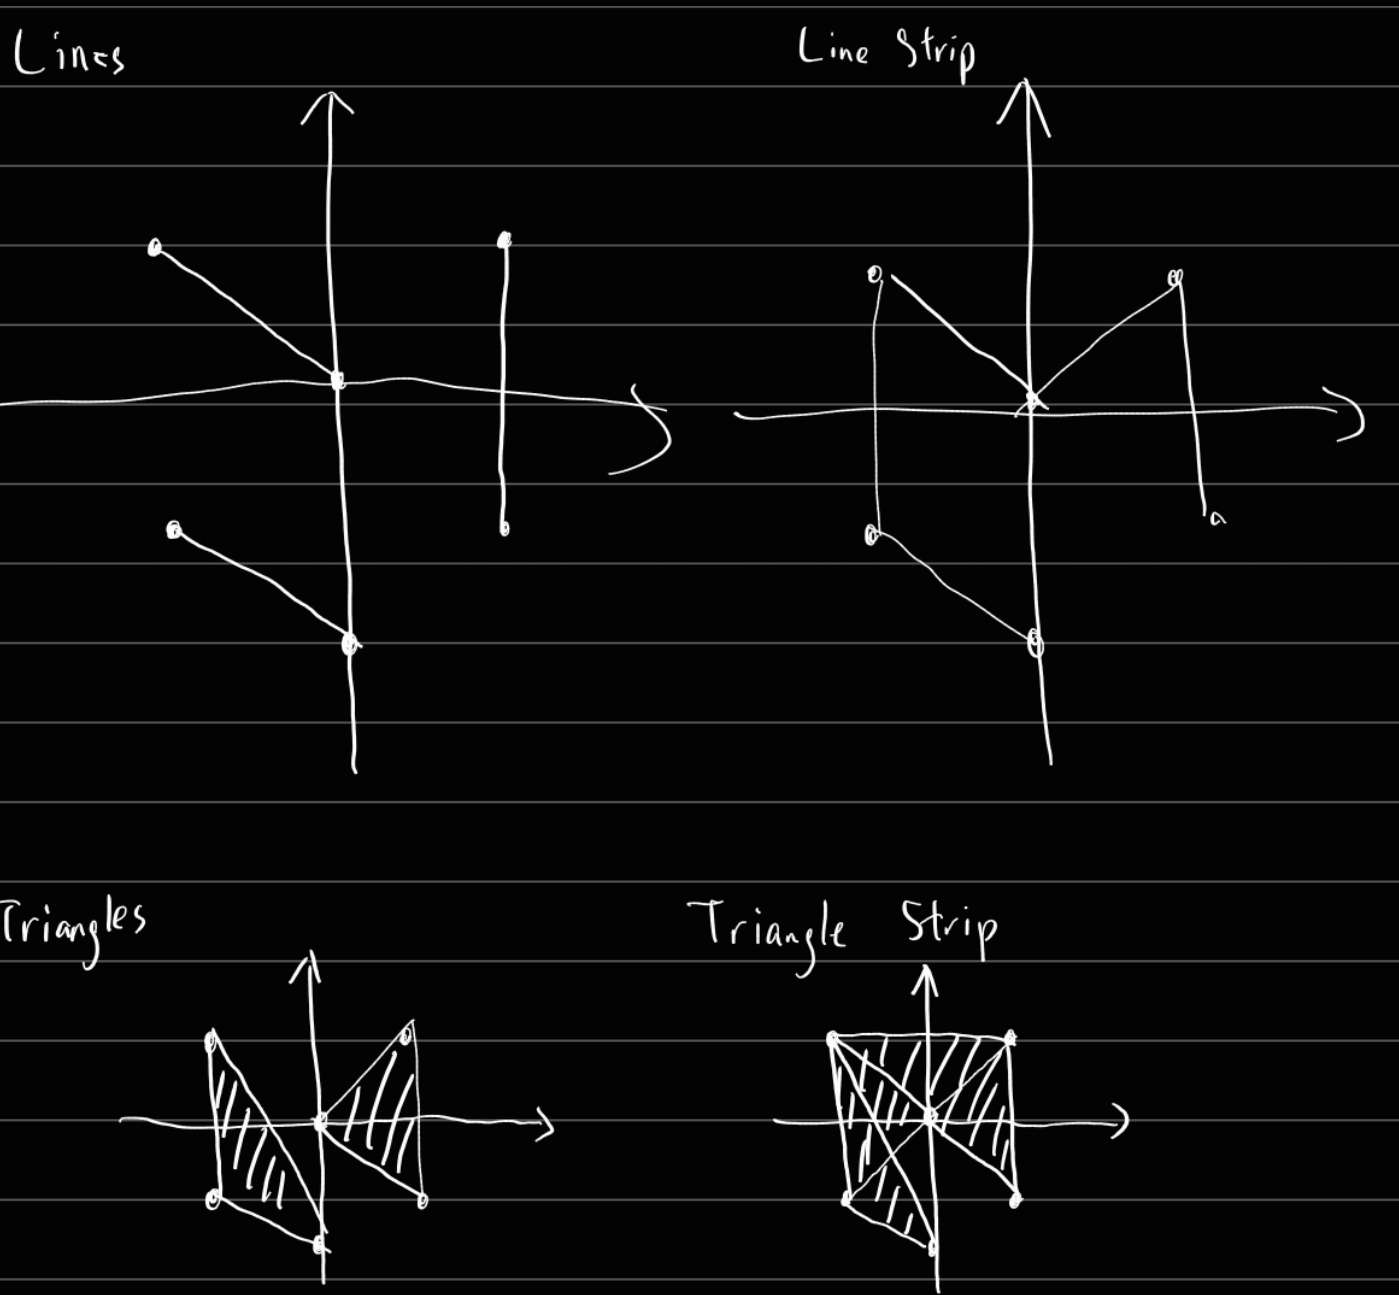 Lines
Line Strip
Triangles
Triangle Strip